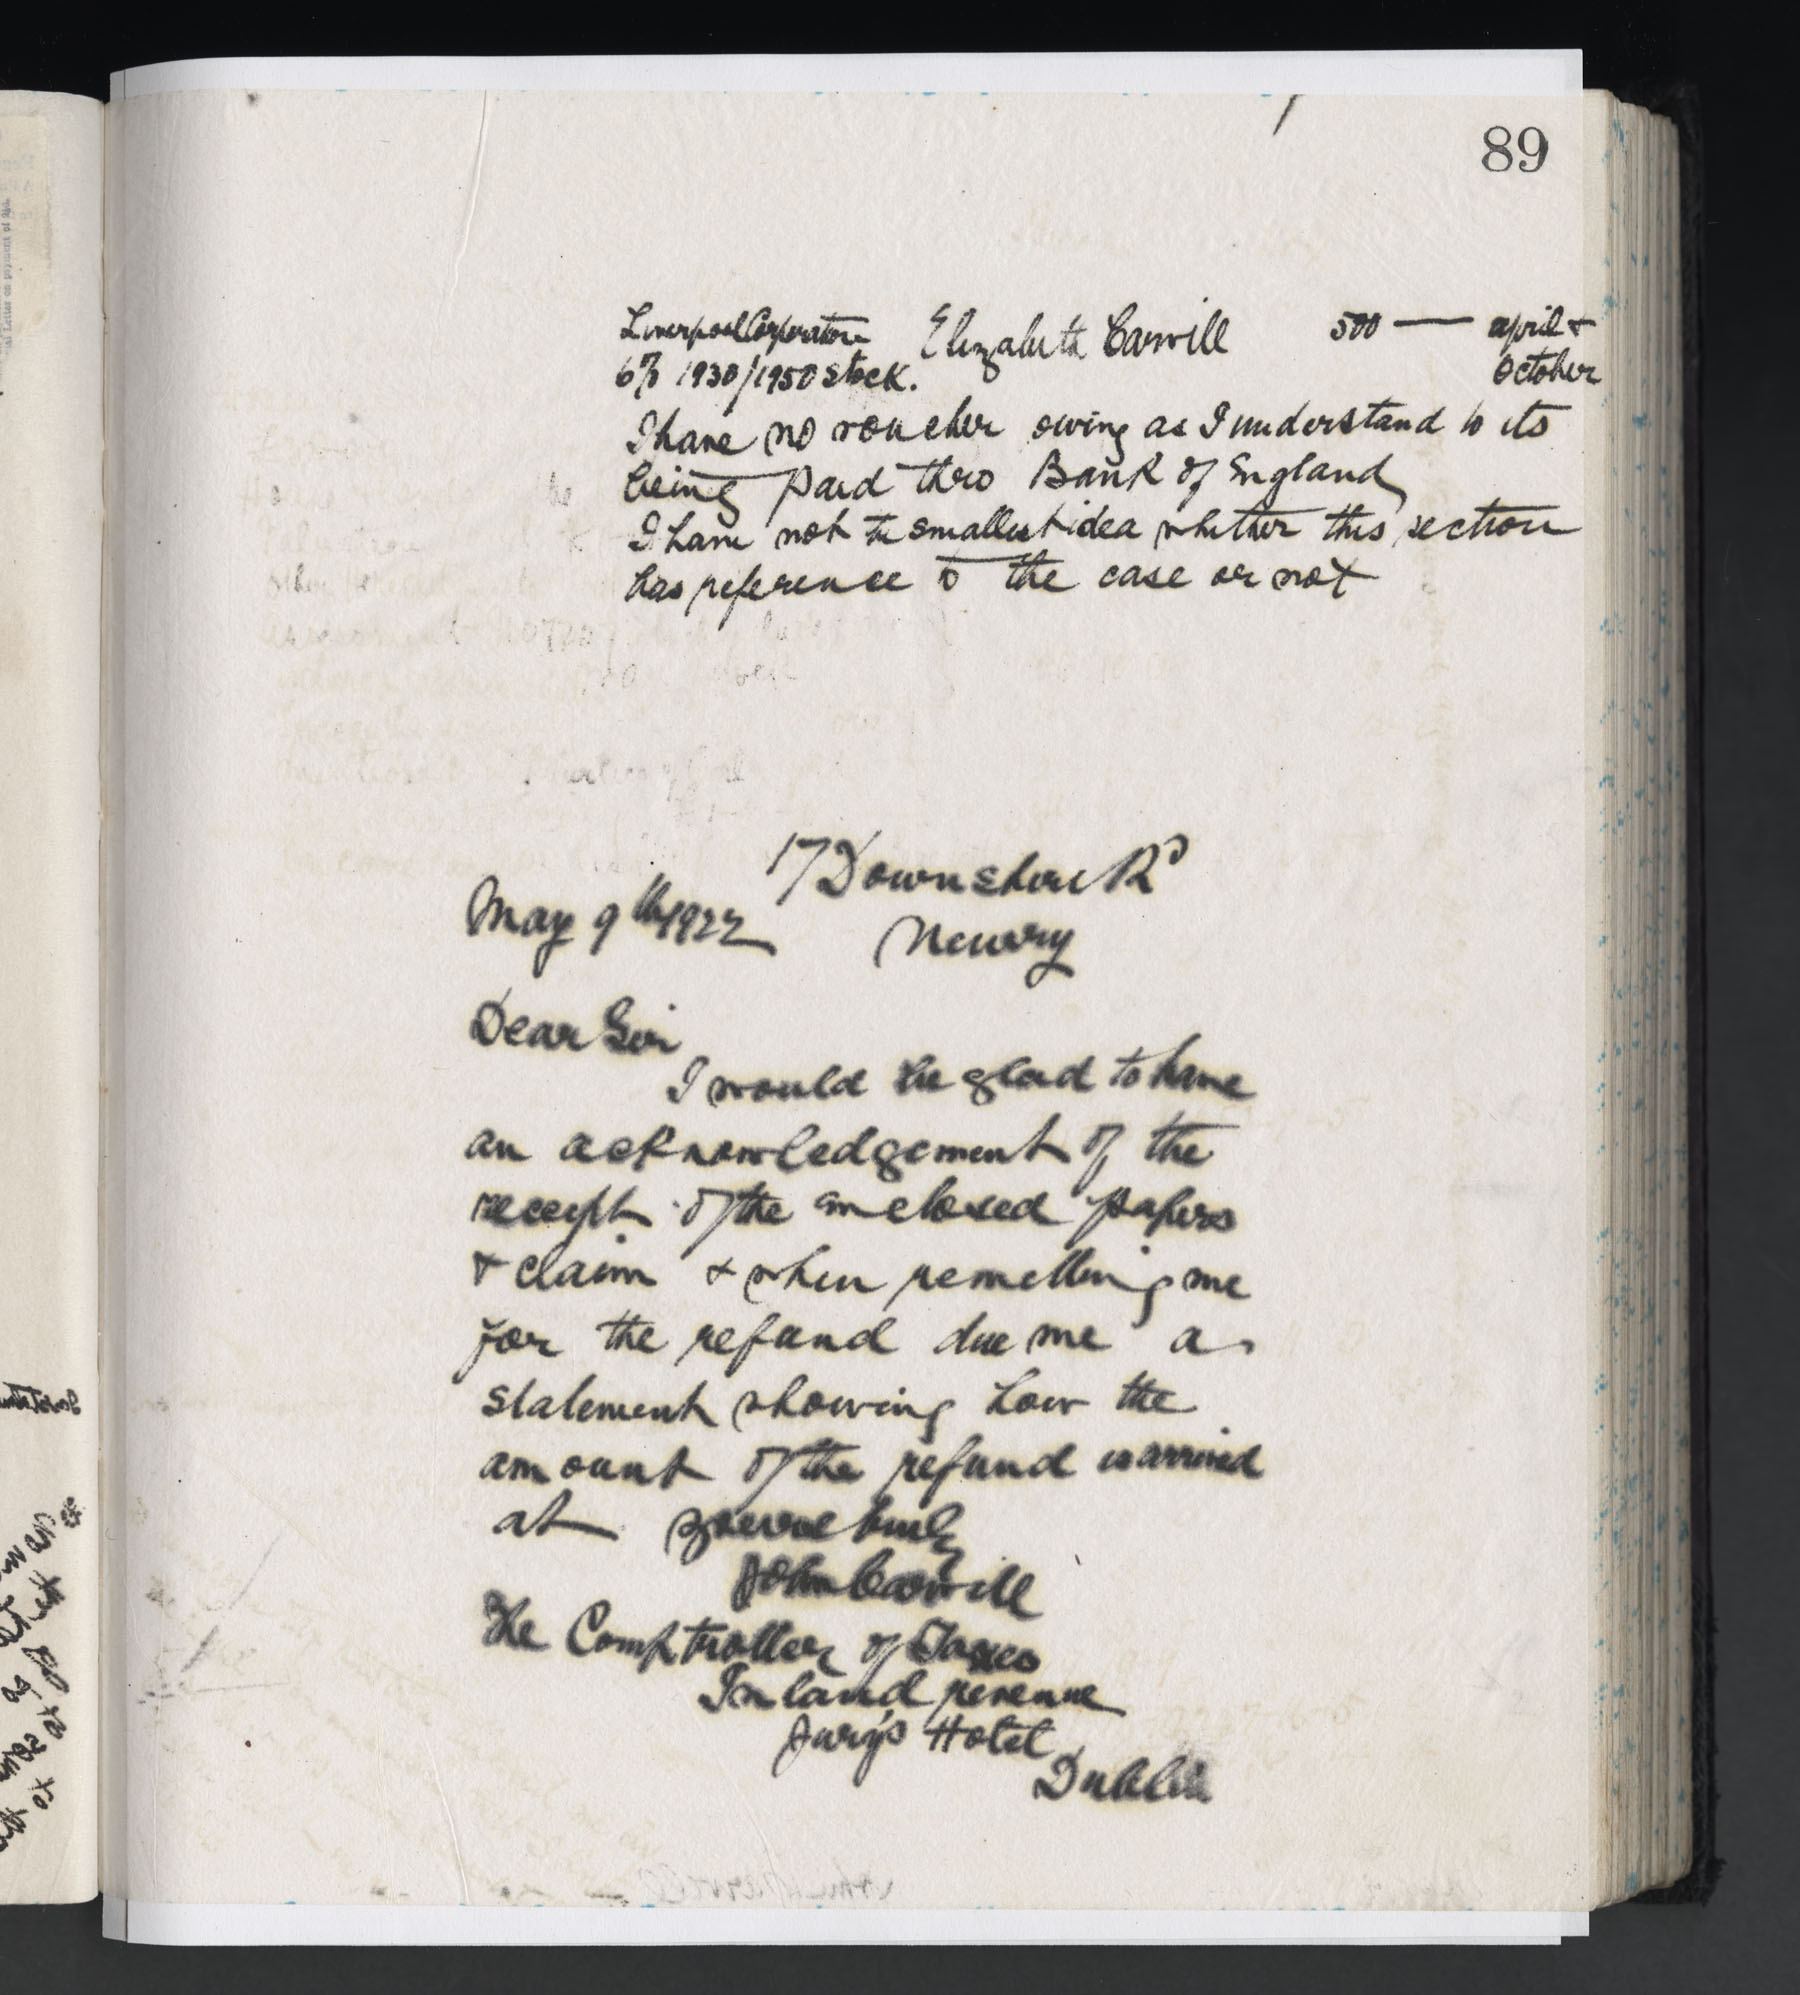 89
Liverpool Corporation Elizabeth Carvill 500 — april +
6% 1930/1950 stock. October
I have no voucher owing as I understand to its
being paid thro Bank of England
I have not the smallest idea whether this section
has reference to the case or not
17 Downshire Rd
May 9th 1922 Newry
Dear Sir
I would be glad to have
an acknowledgement of the
receipt of the enclosed papers
+ claim + when remitting me
for the refund due me a
statement showing how the
amount of the refund is arrived
at yours truly
John Carvill
The Comptroller of Taxes
Inland revenue
Jury's Hotel
Dublin